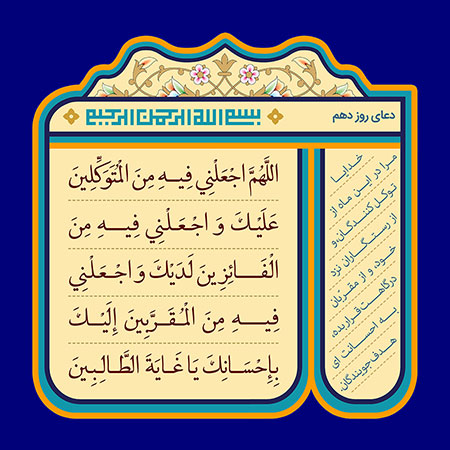 دعای روز دهم
بسم الله الرحمن الرحیم
اللَّهُمَّ اجْعَلْنِي فِيهِ مِنَ الْمُتَوَكِّلِينَ
عَلَيْكَ وَ اجْعَلْنِي فِيهِ مِنَ
الْفَائِزِينَ لَدَيْكَ وَ اجْعَلْنِي
فِيهِ مِنَ الْمُقَرَّبِينَ إِلَيْكَ
بِإِحْسَانِكَ يَا غَايَةَ الطَّالِبِينَ
خدایا
مرا در این ماه از
توکل کنندگان و
از رستگاران نزد
خود، و از مقربان
درگاهت قرار بده،
به احسانت ای
هدف جویندگان.